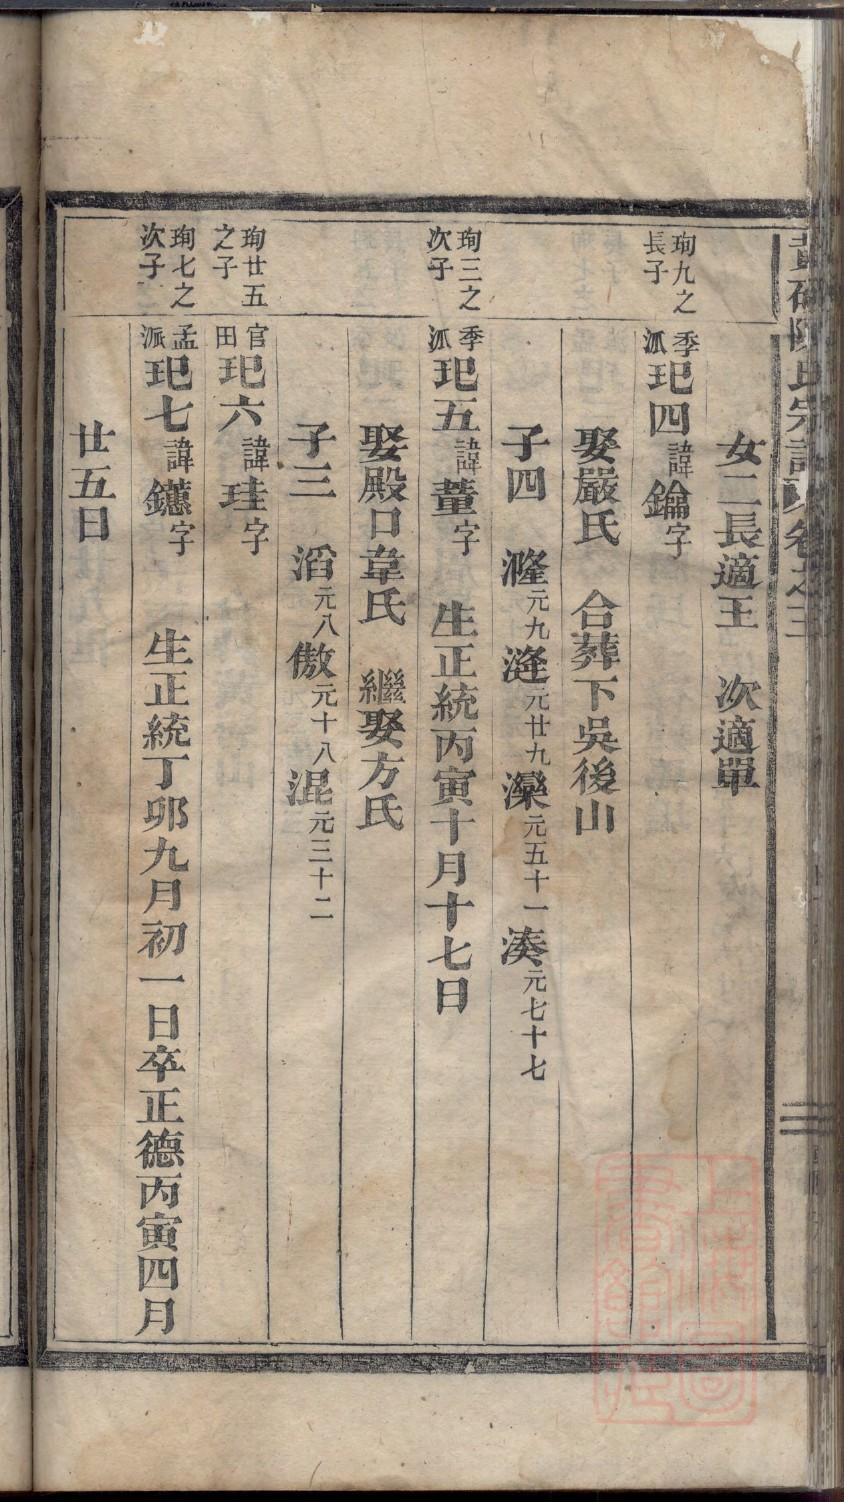 女二長適王　次適單
珣九之長子
季派玘四諱鑰字
娶嚴氏　合葬下吳後山
子四　漋元九漨元廿九灤元五十一湊元七十七
珣三之次子
季派玘五諱董字　生正統丙寅十月十七日
娶殿口韋氏　繼娶方氏
子三　滔元八傲元十八混元三十二
珣廿五之子
官田玘六諱珪字
珣七之次子
孟派玘七諱鑢字　生正統丁卯九月初一日卒正德丙寅四月
廿五日
氏宗譜 卷之三